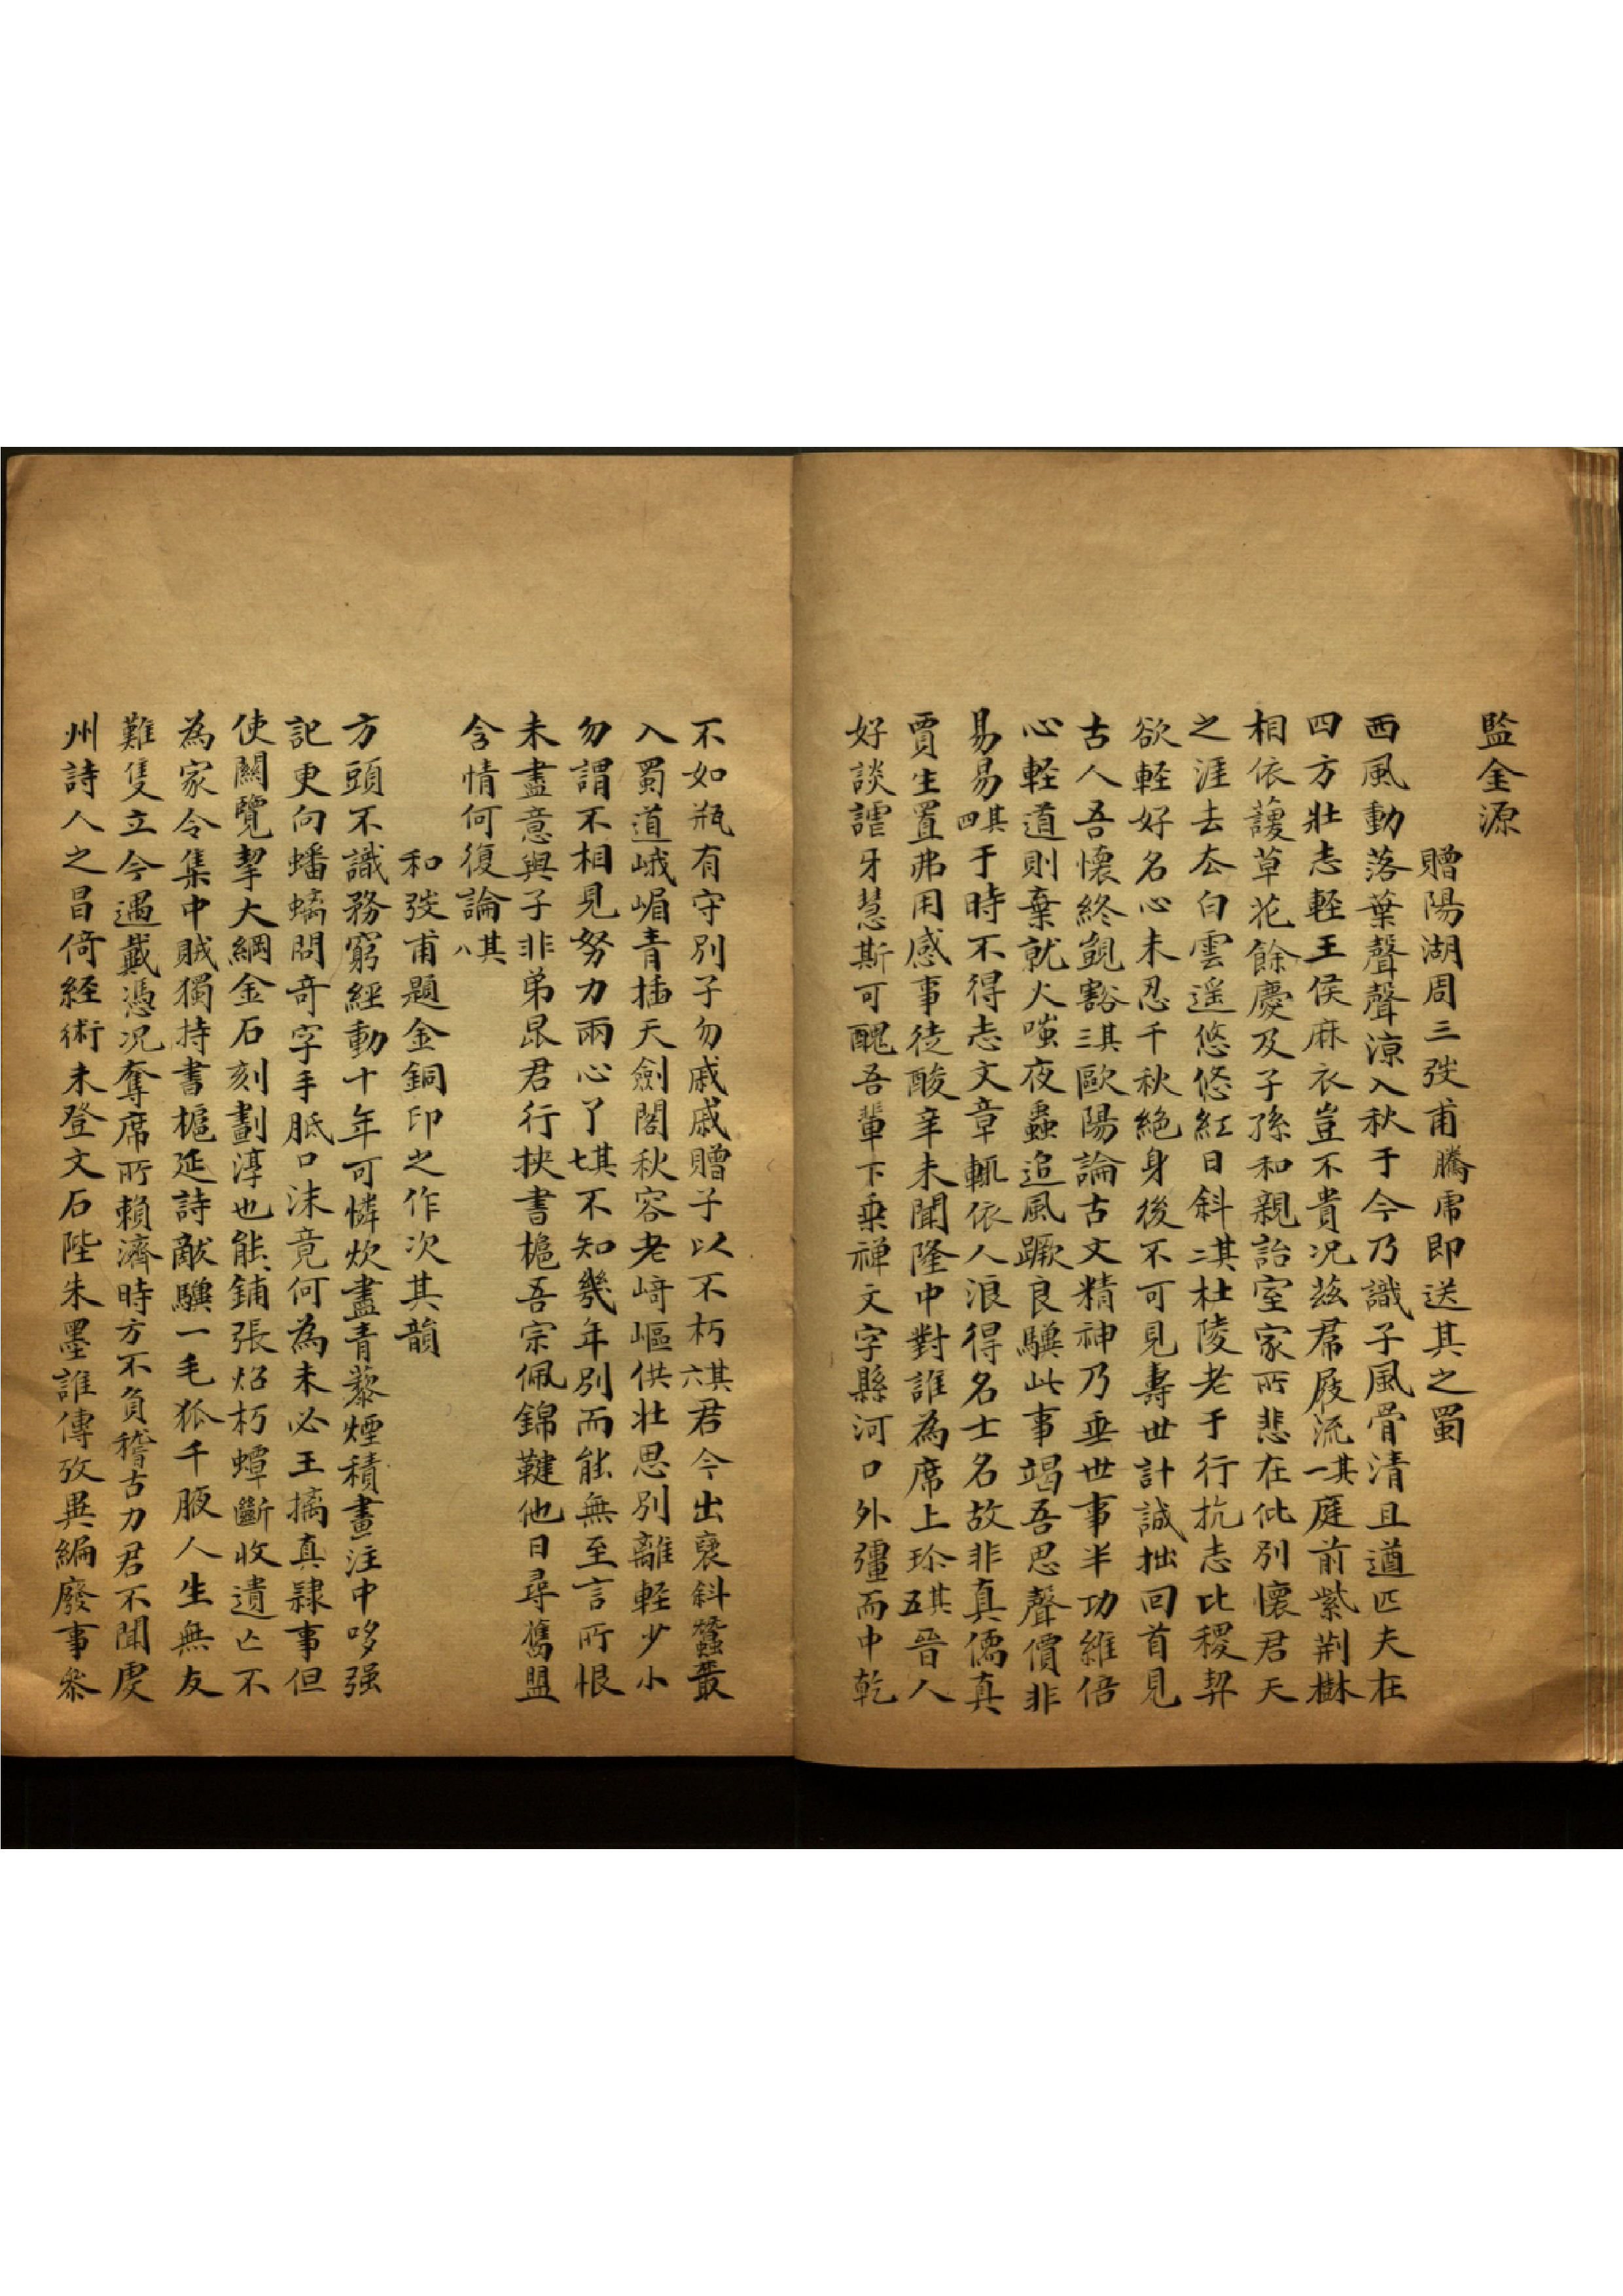 監金源
贈陽湖周三弢甫騰虎即送其之蜀
西風動落葉聲聲涼入秋于今乃識子風骨清且遒匹夫在
四方壯志輕王侯麻衣豈不貴況茲帬屐流其一庭前紫荊樹
相依蘐草花餘慶及子孫和親詒室家所悲在仳別懷君天
之涯去去白雲遥悠悠紅日斜其二杜陵老于行抗志比稷契
欲輕好名心未忍千秋絕身後不可見壽世計誠拙回首見
古人吾懷終覬豁其三歐陽論古文精神乃垂世事半功維倍
心輕道則棄就火嗤夜蟲追風蹶良驥此事竭吾思聲價非
易易其四于時不得志文章輒依人浪得名士名故非真儒真
賈生置弗用感事徒酸辛未聞隆中對誰為席上珍其五晉人
好談謔牙慧斯可醜吾輩下乘禪文字縣河口外彊而中乾
不如瓶有守別子勿戚戚贈子以不朽其六君今出襃斜蠶叢
入蜀道峨嵋青插天劍閣秋容老崎嶇供壯思別離輕少小
勿謂不相見努力兩心了其七不知幾年別而能無至言所恨
未盡意與子非弟昆君行挾書樀吾宗佩錦鞬他日尋舊盟
含情何復論其八
和弢甫題金銅印之作次其韻
方頭不識務窮經動十年可憐炊盡青藜煙積畫注中哆强
記更向蟠螭問奇字手胝口沫竟何為未必王摛真隸事但
使闕覽挈大綱金石刻劃淳也能鋪張炲朽蟫斷收遺亡不
為家令集中賊獨持書樀延詩敵驥一毛狐千腋人生無友
難隻立今遇戴憑況奪席所賴濟時方不負稽古力君不聞虔
州詩人之昌倚経術未登文石陛朱墨誰傳攷異編廢事叅